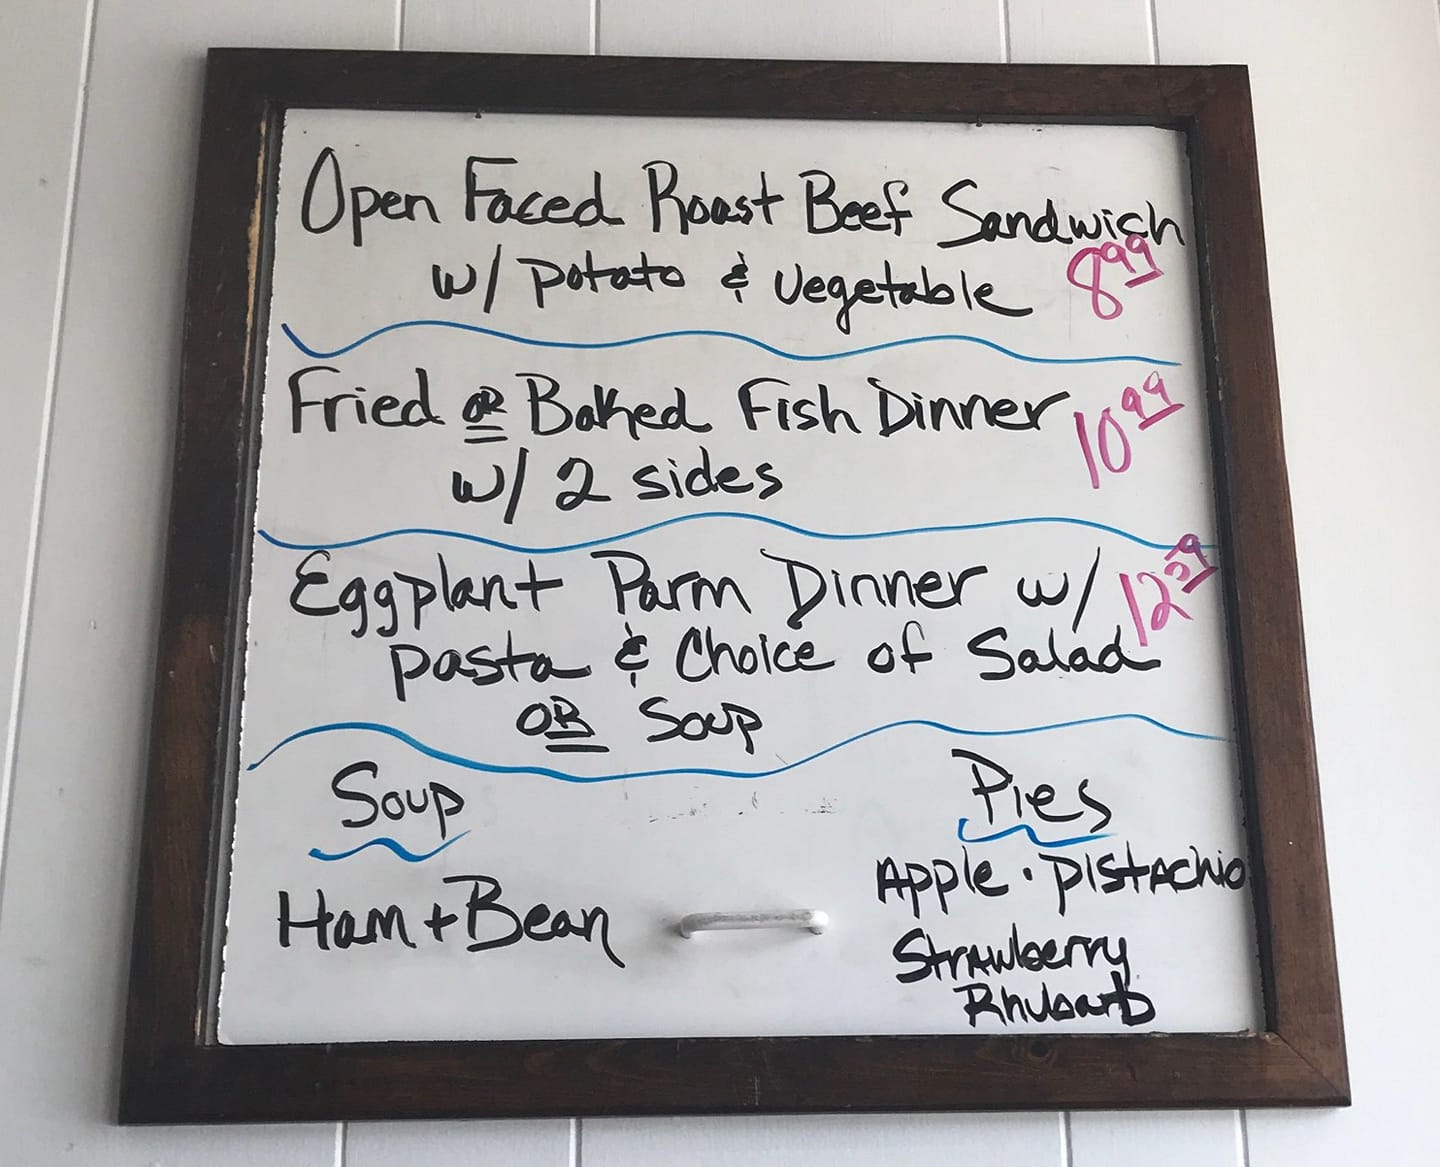 Open Faced Roast Beef Sandwich
w/ potato & vegetable 8.99
Fried OR Baked Fish Dinner 10.99
w/ 2 sides
Eggplant Parm Dinner w/ 12
pasta & Choice of Salad
OR Soup
Soup
Ham + Bean
Pies
Apple · Pistachio
Strawberry
Rhubarb